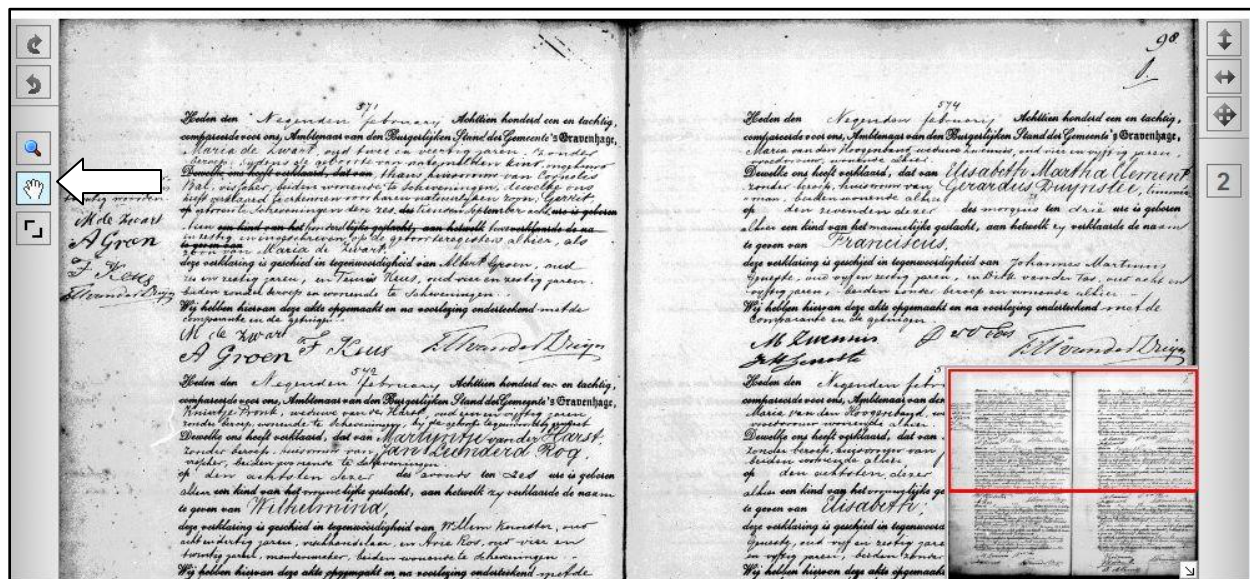 371
Heden den Negenden February Achttien honderd een en tachtig,
compareerde voor ons, Ambtenaar van den Burgerlijken Stand der Gemeente 's Gravenhage,
Maria de Zwart, oud twee en veertig jaren, zonder
beroep, tijdens de geboorte van natemelden kind, ongehuwd
Dewelke ons heeft verklaard, dat van thans huisvrouw van Cornelis
Bal, visscher, beiden wonende te Scheveningen, dewelke ons
heeft verklaard te erkennen voor haren natuurlijken zoon, Gerrit,
geboren te Scheveningen den zes, des tienden September acht ure is geboren
tien een kind van het honderd lijke geslacht, aan hetwelk verklaarde de na
en zestig en ingeschreven op de geboorteregisters alhier, als
te geven van
zoon van Maria de Zwart
deze verklaring is geschied in tegenwoordigheid van Albert Groen, oud
zes en zestig jaren, en Teunis Keus, oud vier en zestig jaren,
beiden zonder beroep en wonende te Scheveningen.
Wij hebben hiervan deze akte opgemaakt en na voorlezing onderteekend met de
comparante en de getuigen.
M de Zwart
A Groen F Keus
M de Zwart
A Groen
F Keus
572
Heden den Negenden February Achttien honderd een en tachtig,
compareerde voor ons, Ambtenaar van den Burgerlijken Stand der Gemeente 's Gravenhage,
Pronk, weduwe van der Harst, oud een en vijftig jaren,
zonder beroep, wonende te Scheveningen, bij de geboorte tegenwoordig geweest
Dewelke ons heeft verklaard, dat van Martijntje van der Harst
zonder beroep, huisvrouw van Jan Leendert Rog,
visscher, beiden wonende te Scheveningen.
op den achtsten dezer des avonds ten zes ure is geboren
alhier een kind van het vrouwelijke geslacht, aan hetwelk zy verklaarde de naam
te geven van Wilhelmina,
deze verklaring is geschied in tegenwoordigheid van Willem Knoester, oud
acht en dertig jaren, vischhandelaar, en Arie Kos, oud vier en
twintig jaren, mandenmaker, beiden wonende te Scheveningen
Wij hebben hiervan deze akte opgemaakt en na voorlezing onderteekend met de
98
574
Heden den Negenden February Achttien honderd een en tachtig,
compareerde voor ons, Ambtenaar van den Burgerlijken Stand der Gemeente 's Gravenhage,
Maria van den Hoogenband, weduwe Zwennis, oud vier en vijftig jaren,
vroedvrouw, wonende alhier
Dewelke ons heeft verklaard, dat van Elisabeth Martha Clement
zonder beroep, huisvrouw van Gerardus Duynstee, timmer
man, beiden wonende alhier
op den zevenden dezer des morgens ten drie ure is geboren
alhier een kind van het mannelijke geslacht, aan hetwelk zy verklaarde de naam
te geven van Franciscus,
deze verklaring is geschied in tegenwoordigheid van Johannes Martinus
oud vijf en zestig jaren, en Dirk van der Tas, oud acht en
vijftig jaren, beiden zonder beroep en wonende alhier
Wij hebben hiervan deze akte opgemaakt en na voorlezing onderteekend met de
Comparante en de getuigen
M Zwennis
Heden den Negenden febr
compareerde voor ons, Ambtenaar van den
Maria van den Hoogenband, we
vroedvrouw wonende alhier
Dewelke ons heeft verklaard, dat van
zonder beroep, huisvrouw van
beiden wonende alhier
op den achtsten dezer
alhier een kind van het vrouwelijke ge
te geven van Elisabeth,
deze verklaring is geschied in tegenwoord
oud vijf en zestig jaren
en vijftig jaren, beiden zonder
Wij hebben hiervan deze akte opgemaakt
2